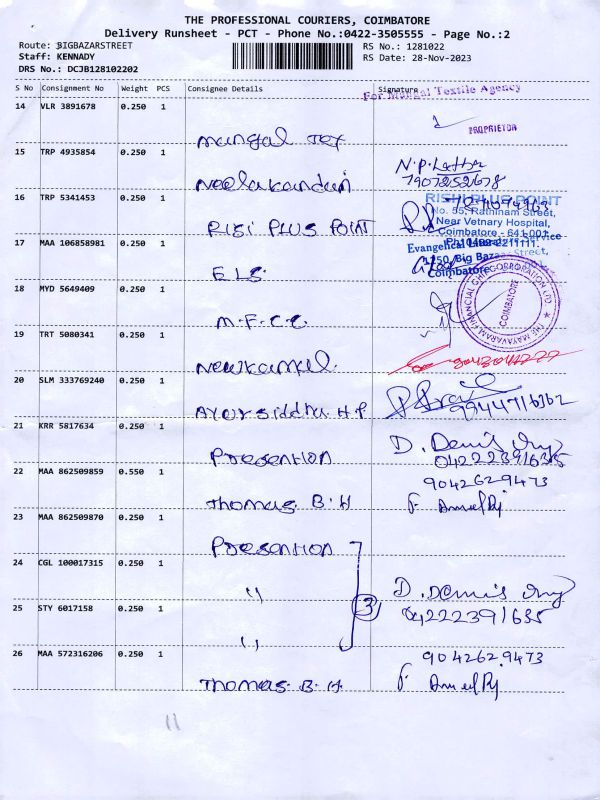 THE PROFESSIONAL COURIERS, COIMBATORE
Delivery Runsheet - PCT - Phone No.:0422-3505555 - Page No.:2
Route: BIGBAZARSTREET
RS No.: 1281022
Staff: KENNADY
RS Date: 28-Nov-2023
DRS No.: DCJB128102202
S No Consignment No Weight PCS Consignee Details Signature
For Mangal Textile Agency
14 VLR 3891678 0.250 1
PROPRIETOR
Mangal Tex
15 TRP 4935854 0.250 1
Neelakandan
16 TRP 5341453 0.250 1
RISHI PLUS POINT
No. 55, Rathinam Street,
Near Vetnary Hospital,
Coimbatore - 641 001
RIGI PLUS POINT
17 MAA 106858981 0.250 1
Evangelical
Service
1250, Big Bazaar Street,
Coimbatore
E.L.S.
18 MYD 5649409 0.250 1
COIMBATORE
M.F.C.C.
19 TRT 5080341 0.250 1
20 SLM 333769240 0.250 1
Ayur Siddha H.P
9944716362
21 KRR 5817634 0.250 1
Presention
D. Denis
04222391635
22 MAA 862509859 0.550 1
9042629473
Thomas. B.H
23 MAA 862509870 0.250 1
Presention
24 CGL 100017315 0.250 1
"
D. Denis
3
25 STY 6017158 0.250 1
04222391635
"
26 MAA 572316206 0.250 1
904262.9473
Thomas. B.H.
11